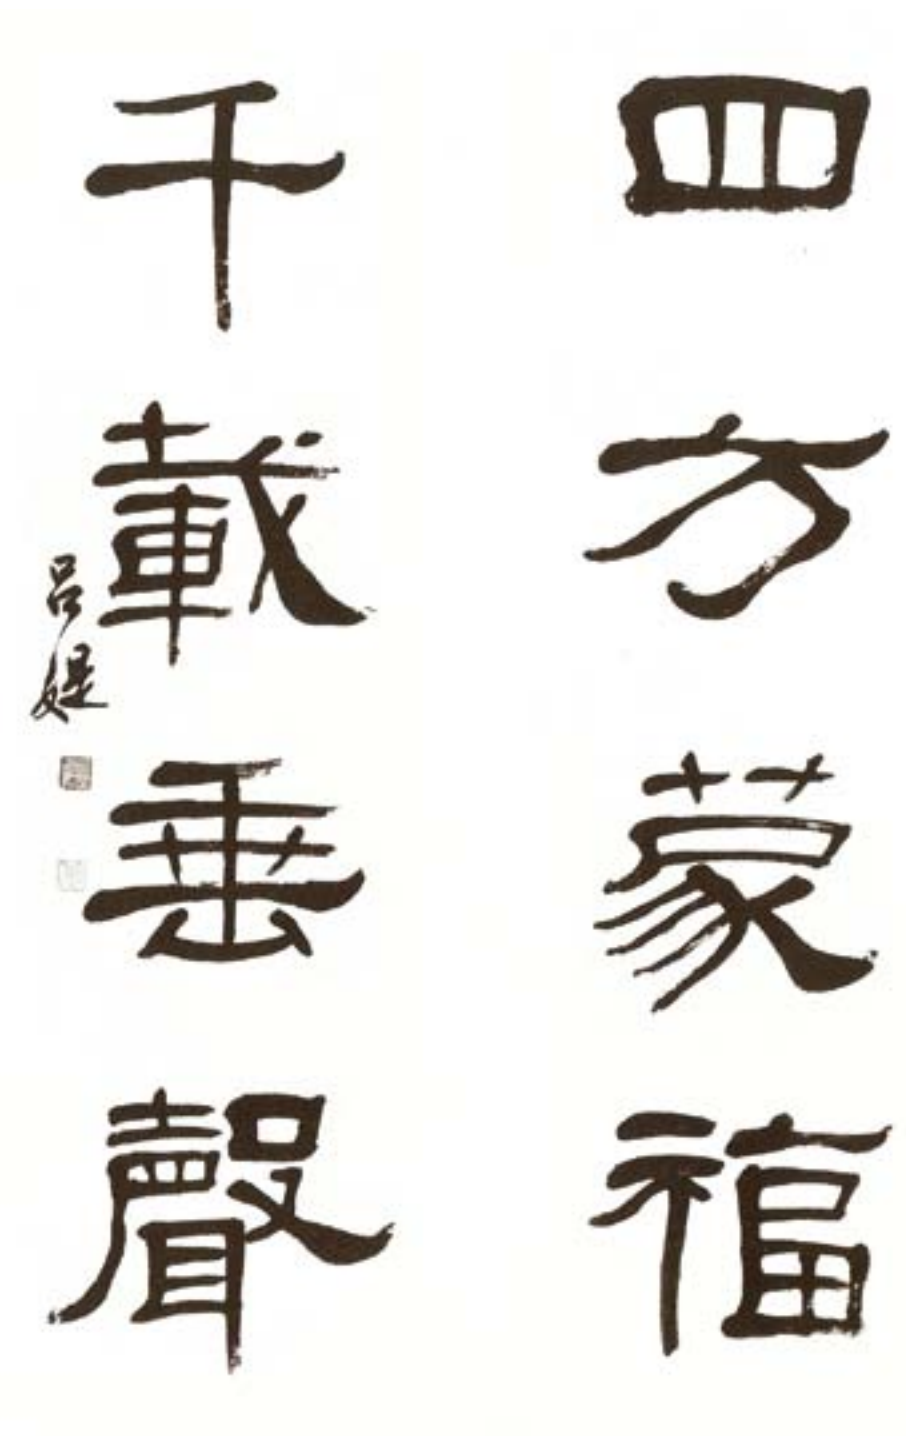 四方蒙福
千載垂聲
吕媞